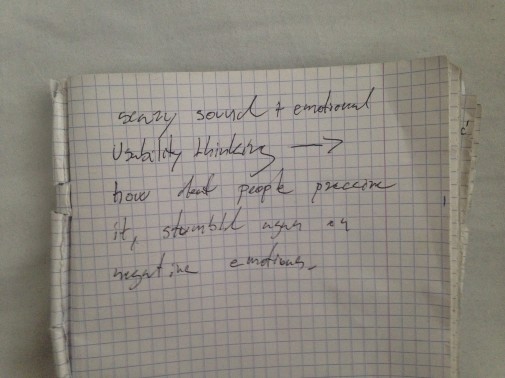 scary sound + emotional
Usability thinking →
how deaf people
it, stumbled
negative emotions.